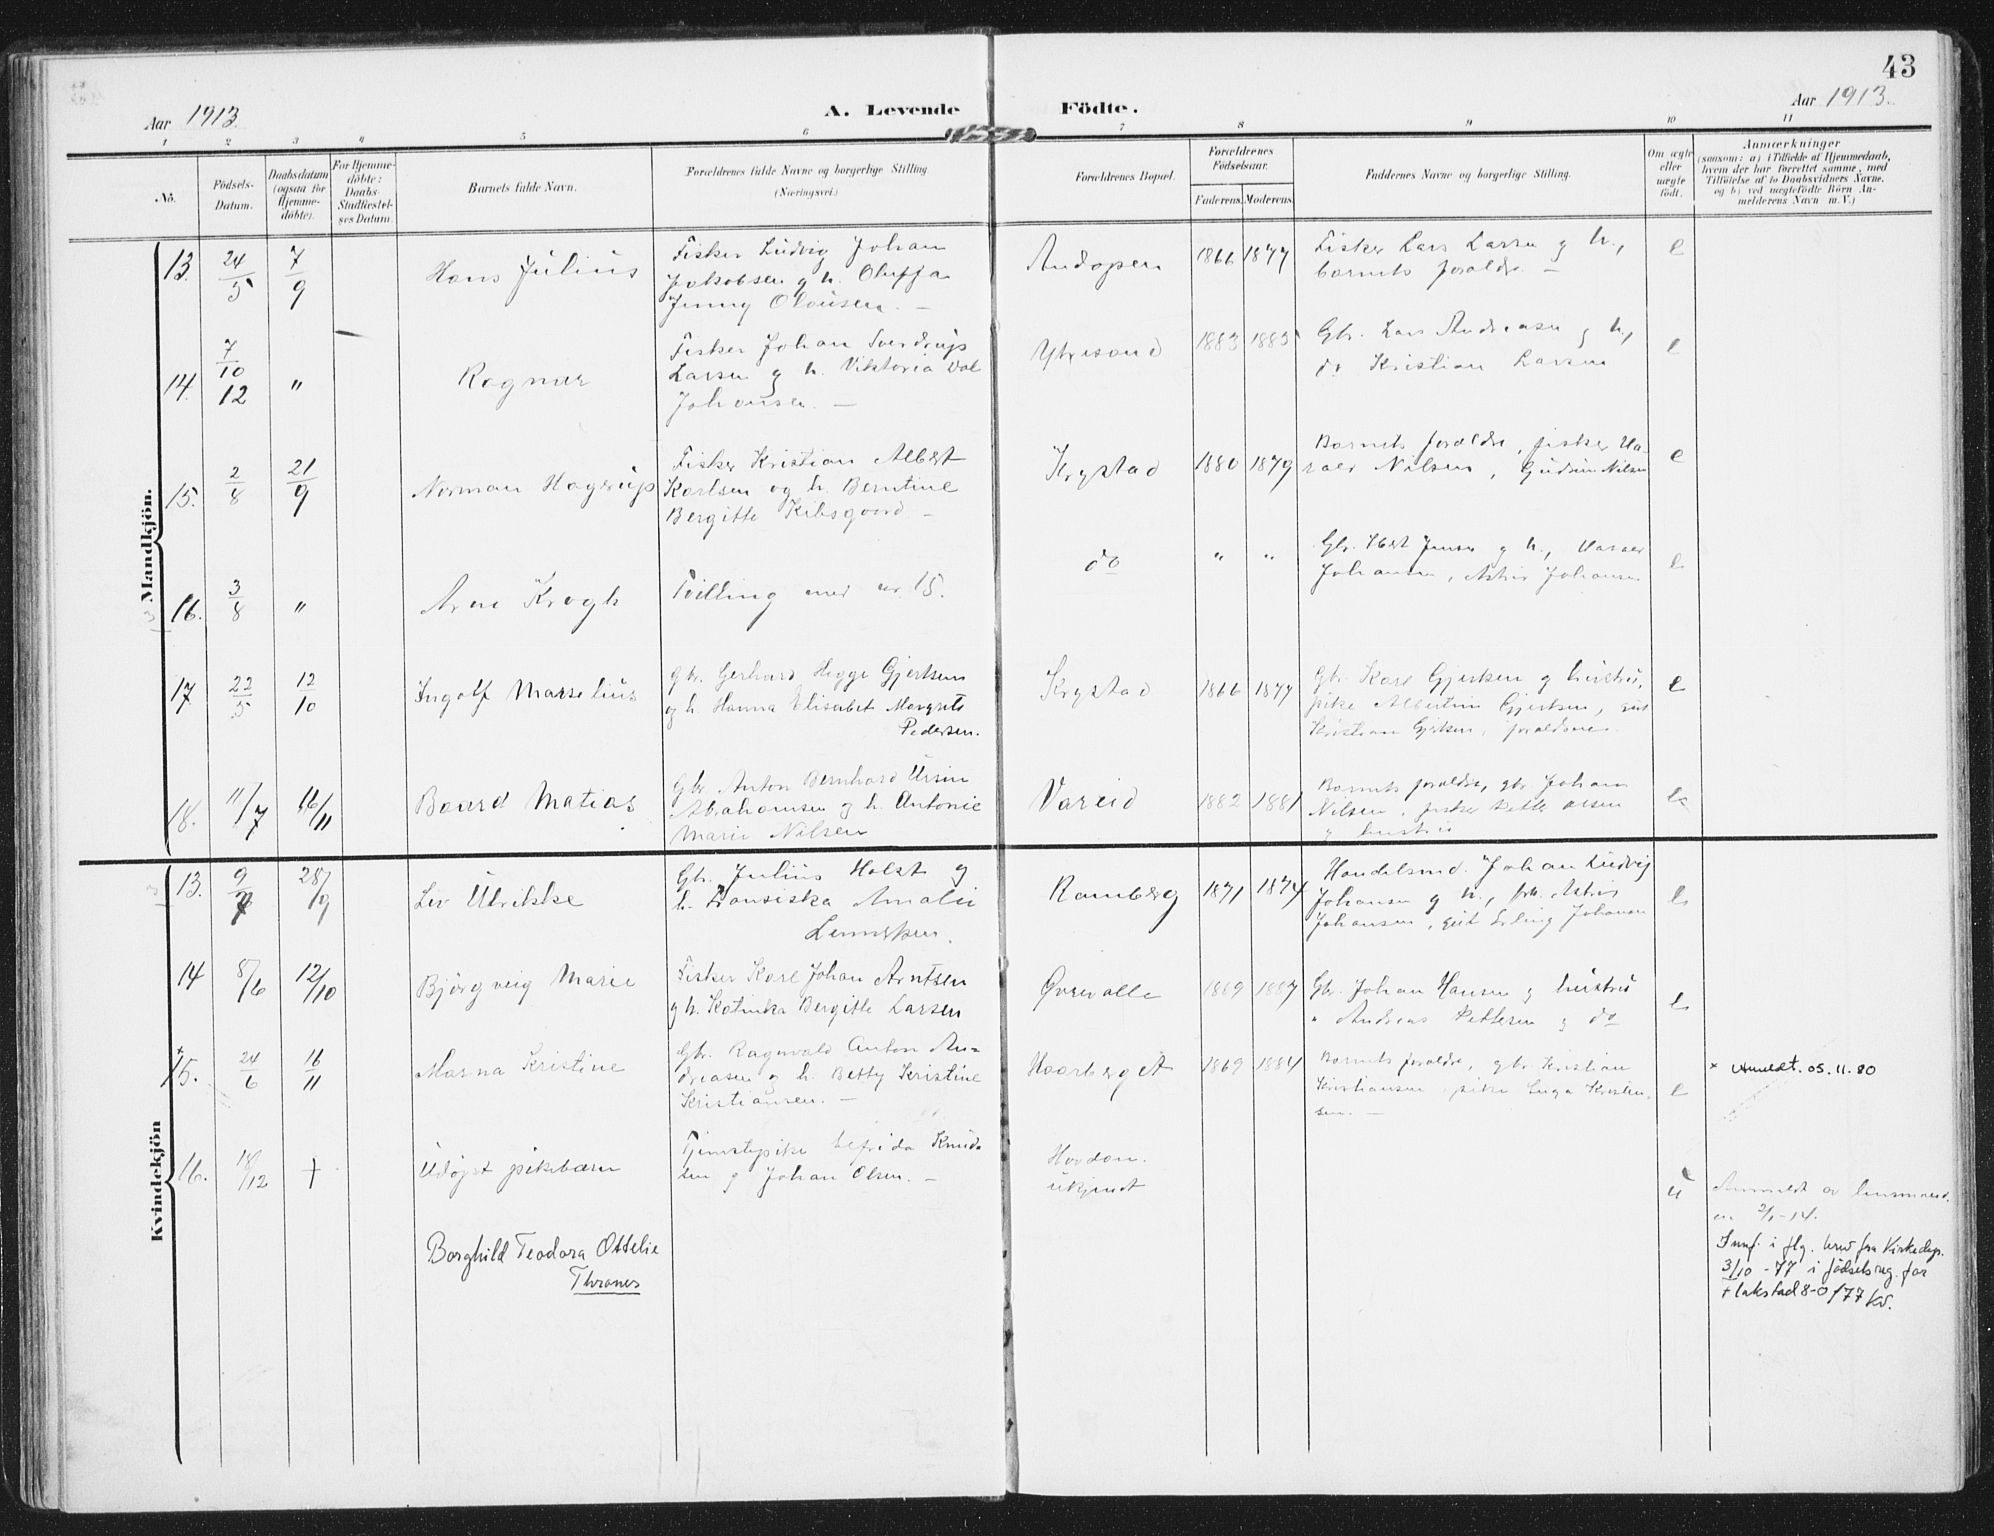 43
Aar 1913.
A. Levende
Födte.
Aar 1913.
1 2 3 4 5 6 7 8 9 10 11
No.
Födsels-
Datum.
Daabsdatum
(ogsaa for
Hjemme-
döbte).
For Hjemme-
döbte:
Daabs-
Stadfæstel-
ses Datum.
Barnets fulde Navn.
Forældrenes fulde Navne og borgerlige Stilling
(Næringsvei.)
Forældrenes Bopæl.
Forældrenes
Födselsaar.
Faderens. Moderens.
Faddernes Navne og borgerlige Stilling.
Om ægte
eller
uægte
födt.
Anmærkninger
(saasom: a) i Tilfælde af Hjemmedaab,
hvem der har forrettet samme, med
Tilföielse af to Daabsvidners Navne.
og b) ved uegtefödte Börn An-
melderens Navn m. V.)
Mandkjön.
13. 24/5 7/9 Hans Julius
Fisker Ludvig Johan
Jakobsen og h. Oluffa
Jenny Olausen. —
Andopen 1866 1877
Fisker Lars Larsen og h.,
barnets foraldre. —
e
14. 7/10 12 " Ragnar
Fisker Johan Sverdrup
Larsen og h. Viktoria Dal
Johansen. —
Ytresand 1883 1885
Gbr. Lars Andreasen og h.,
do Kristian Larsen
e
15. 2/8 21/9 Norman Hagerup
Fisker Kristian Albert
Karlsen og h. Berntine
Bergitte Kilsgaard —
Krystad 1880 1879
Barnets foraldre, fisker Ha-
rald Nilsen, Gudrun Nilsen
e
16. 3/8 " Arne Krogh
Tvilling med nr. 15.
do " "
Gbr. Jensen og h., Harald
Johansen, Astrid Johansen
e
17 22/5 12/10 Ingolf Marselius
Gbr. Gerhard Hegge Gjertsen
og h. Hanna Elisabet Margrete
Pedersen.
Krystad 1866 1877
Gbr. Karl Gjertsen og hustru,
pike Albertine Gjertsen, gut
Kristian Gjertsen, foraldrene.
e
18. 11/7 16/11 Baard Matias
Gbr. Anton Bernhard Ursin
Abrahamsen og h. Antonie
Marie Nilsen
Vareid 1882 1881
Barnets foraldre, gbr. Johan
Nilsen, fisker Petter Olsen
og hustru
e
Kvindekjön
13. 9/7 28/9 Liv Ulrikke
Gbr. Julius Holst og
h. Fransiska Amalie
Ramberg 1871 1874
Handelsmd. Johan Ludvig
Johansen og h., frk. Astrid
Johansen, gut Erling Johansen
e
14 8/6 12/10 Bjørgveig Marie
Fisker Karl Johan Arntsen
og h. Katinka Bergitte Larsen
Øvrevalle 1889 1887
Gbr. Johan Hansen og hustru
" Andreas Pettersen og do
e
15. × 24/6 16/11 Marna Kristine
Gbr. Ragnvald Anton An-
dreasen og h. Betty Kristine
Kristiansen. —
1869 1884
Barnets foraldre, gbr. Kristian
Kristiansen, pike Inga Kristian-
sen. —
e
× Utmeldt. 05.11.80
16. 18/12 † Udøpt pikebarn
Tjenestepike Knud-
sen og Johan Olsen. —
ukjendt
u
Anmeldt av lensmand.
2/1-14.
Borghild Teodora Ottelie
Thranes
Innf. i flg. brev fra Kirkedep.
3/10 -77 i fødselsreg. for
Flakstad 8-0/77 Kv.